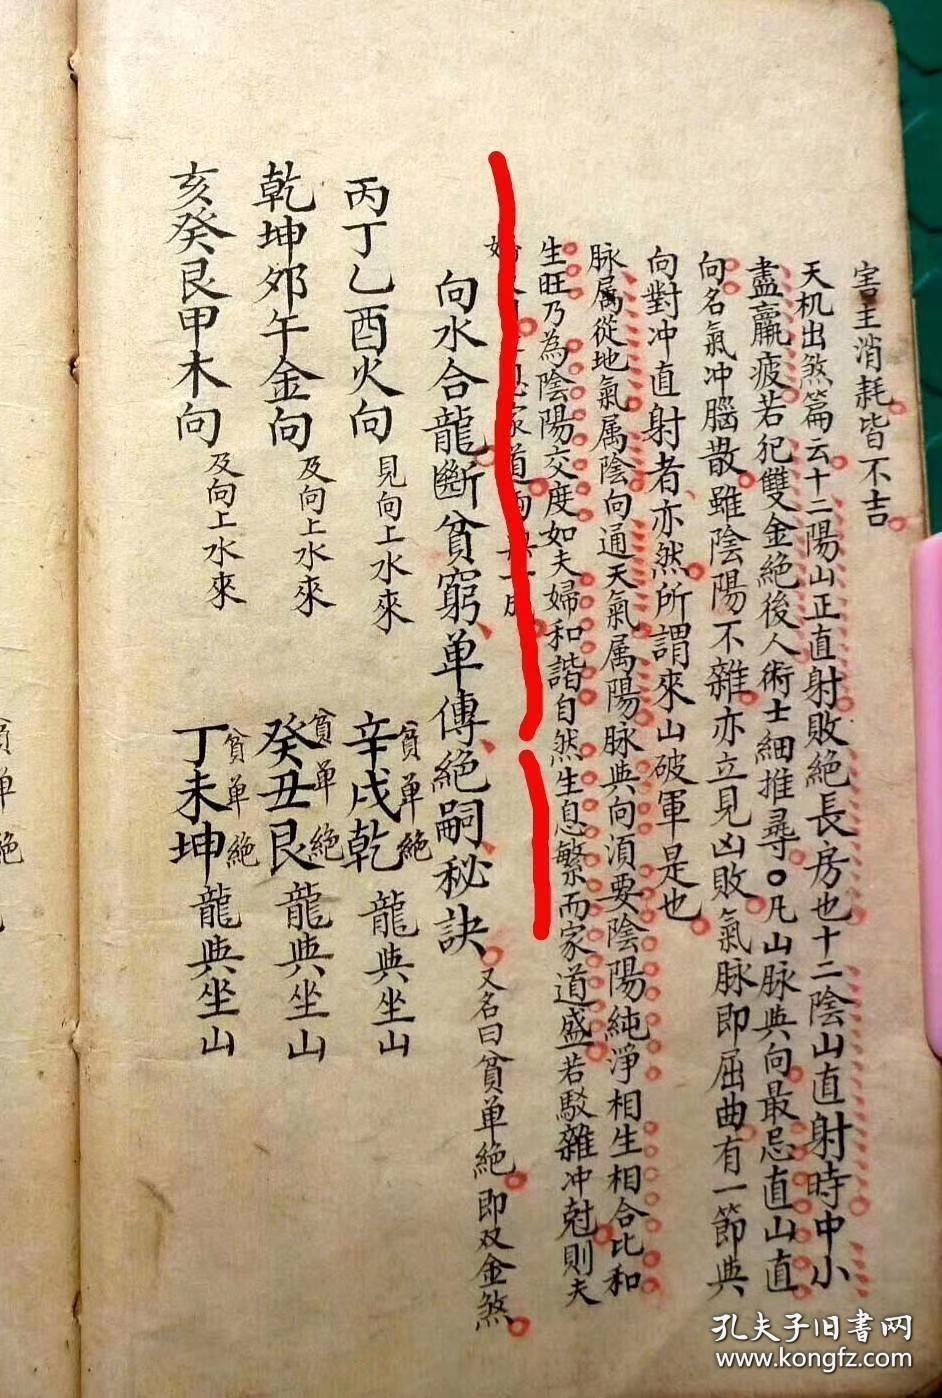 害主消耗皆不吉
天机出煞篇云十二陽山正直射敗絕長房也十二陰山直射時中小
盡羸疲若犯雙金絕後人術士細推尋○凡山脉與向最忌直山直
向名氣冲腦散雖陰陽不雜亦立見凶敗氣脉即屈曲有一節與
向對冲直射者亦然所謂來山破軍是也
脉属從地氣属陰向通天氣属陽脉與向湏要陰陽純淨相生相合比和
生旺乃為陰陽交度如夫婦和諧自然生息繁而家道盛若駁雜冲尅則夫
家道
向水合龍斷貧窮单傳絕嗣秘訣 又名曰貧单絕即双金煞
丙丁乙酉火向 見向上水來 辛戌乾 貧单絕 龍與坐山
乾坤邜午金向 及向上水來 癸丑艮 貧单絕 龍與坐山
亥癸艮甲木向 及向上水來 丁未坤 貧单絕 龍與坐山
貧单絕
孔夫子旧书网
www.kongfz.com